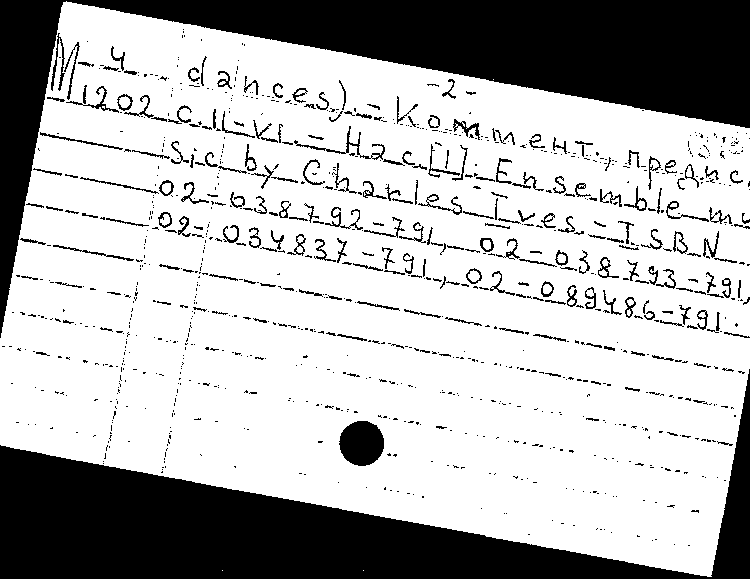 -2-
М 4 dances). – Коммент., предис.
1202 c. II–VI. – Нас[1]: Ensemble mu
sic by Charles Ives. – ISBN
02–038792–791, 02–038793–791,
02–034837–791, 02–089486–791.